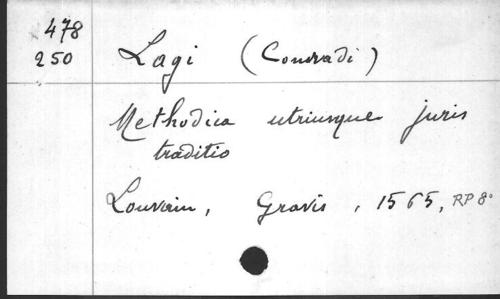 478
250
Lagi (Conradi)
Methodica utriusque juris
traditio
Louvain, Gravis, 1565, RP 8°